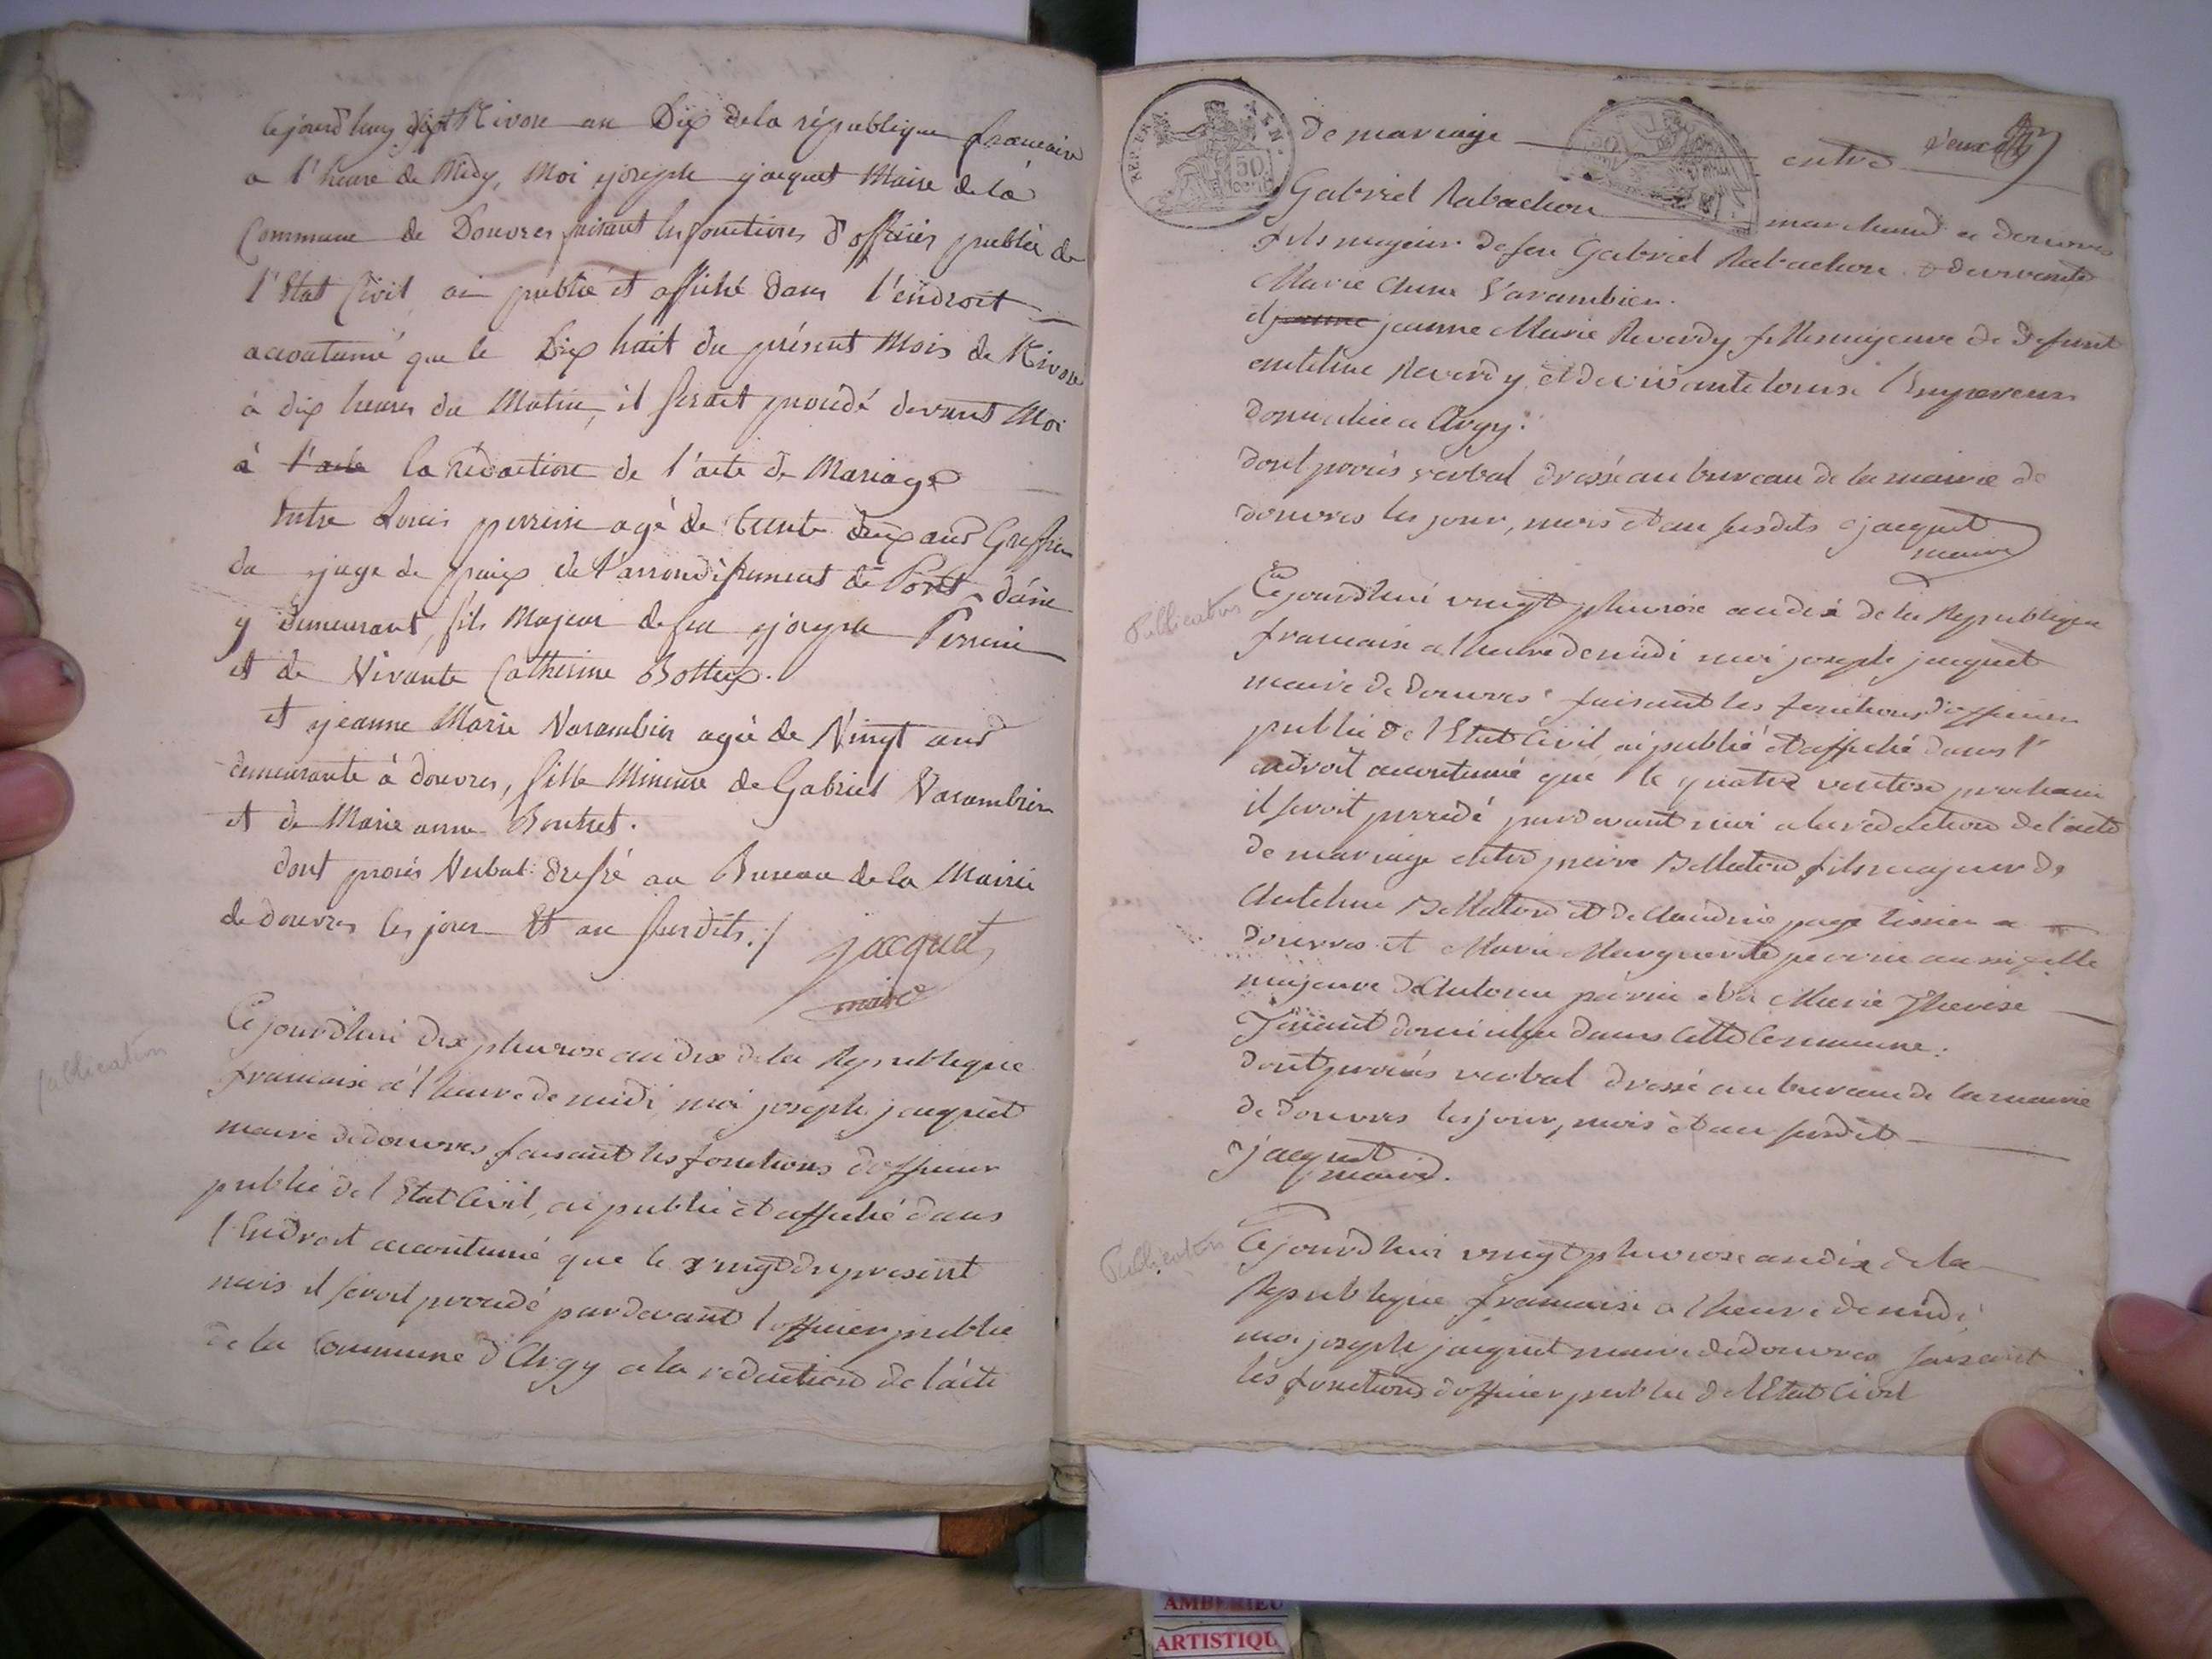 Cejourd'huy Sept Nivose an Dix de la république francaise
a l'heure de Midy, Moi joseph jacquet Maire de la
Commune de Douvres faisant les fonctions d'officier public de
l'Etat Civil, ai publié et affiché dans l'endroit
accoutumé que le Dix huit du présent Mois de Nivose
à dix heures du Matin, il serait procédé devant Moi
à l'acte la rédaction de l'acte de Mariage
Entre Louis perrin agé de trente deux ans Greffier
du juge de paix de l'arrondissement de Pont-d'ain
y demeurant, fils Majeur de feu joseph Perrin
et de Vivante Catherine Bottex.
et jeanne Marie Varambier agée de Vingt ans
demeurante à douvres, fille Mineure de Gabriel Varambier
et de Marie anne Bouttet.
dont procés Verbal dressé au Bureau de la Mairie
de douvres les jour Et an susdits. /
jacquet
maire
publication
Cejourd'hui dix pluviose an dix de la Republique
francaise à l'heure de midi, moi joseph jacquet
maire de douvres faisant les fonctions d'officier
public de l'Etat Civil, ai publié et affiché dans
l'Endroit accoutumé que le vingt du present
mois il seroit procédé pardevant l'officier public
de la Commune d'Argy a la redaction de l'acte
REP. FRA.
50
de mariage entre
Gabriel Rabachon marchand a douvres
fils majeur de feu Gabriel Rabachon & de vivante
Marie Anne Varambier.
et jeanne jeanne Marie Reverdy fille majeure de defunt
antelme Reverdy et de vivante Louise
domiciliée a Argy.
dont procès verbal dressé au bureau de la mairie de
douvres les jour, mois et an susdits jacquet
maire
Publication
Cejourd'hui vingt pluviose an dix de la Republique
francaise a l'heure de midi moi joseph jacquet
maire de douvres faisant les fonctions d'officier
public de l'Etat Civil, ai publié et affiché dans l'
endroit accoutumé que le quatre ventose prochain
il seroit procédé pardevant moi a la redaction de l'acte
de mariage entre pierre Bellaton fils majeur de
Antelme Bellaton et de Claudine page tissier a
douvres et Marie Marguerite perrin aussi fille
majeure de Antoine perrin et de Marie Therese
domiciliée dans cette Commune.
dont procès verbal dressé au bureau de la mairie
de douvres les jour, mois et an susdit
jacquet
maire.
Publication
Cejourd'hui vingt pluviose an dix de la
Republique francaise a l'heure de midi
moi joseph jacquet maire de douvres faisant
les fonctions d'officier public de l'Etat Civil
AMBERIEU
ARTISTIQU